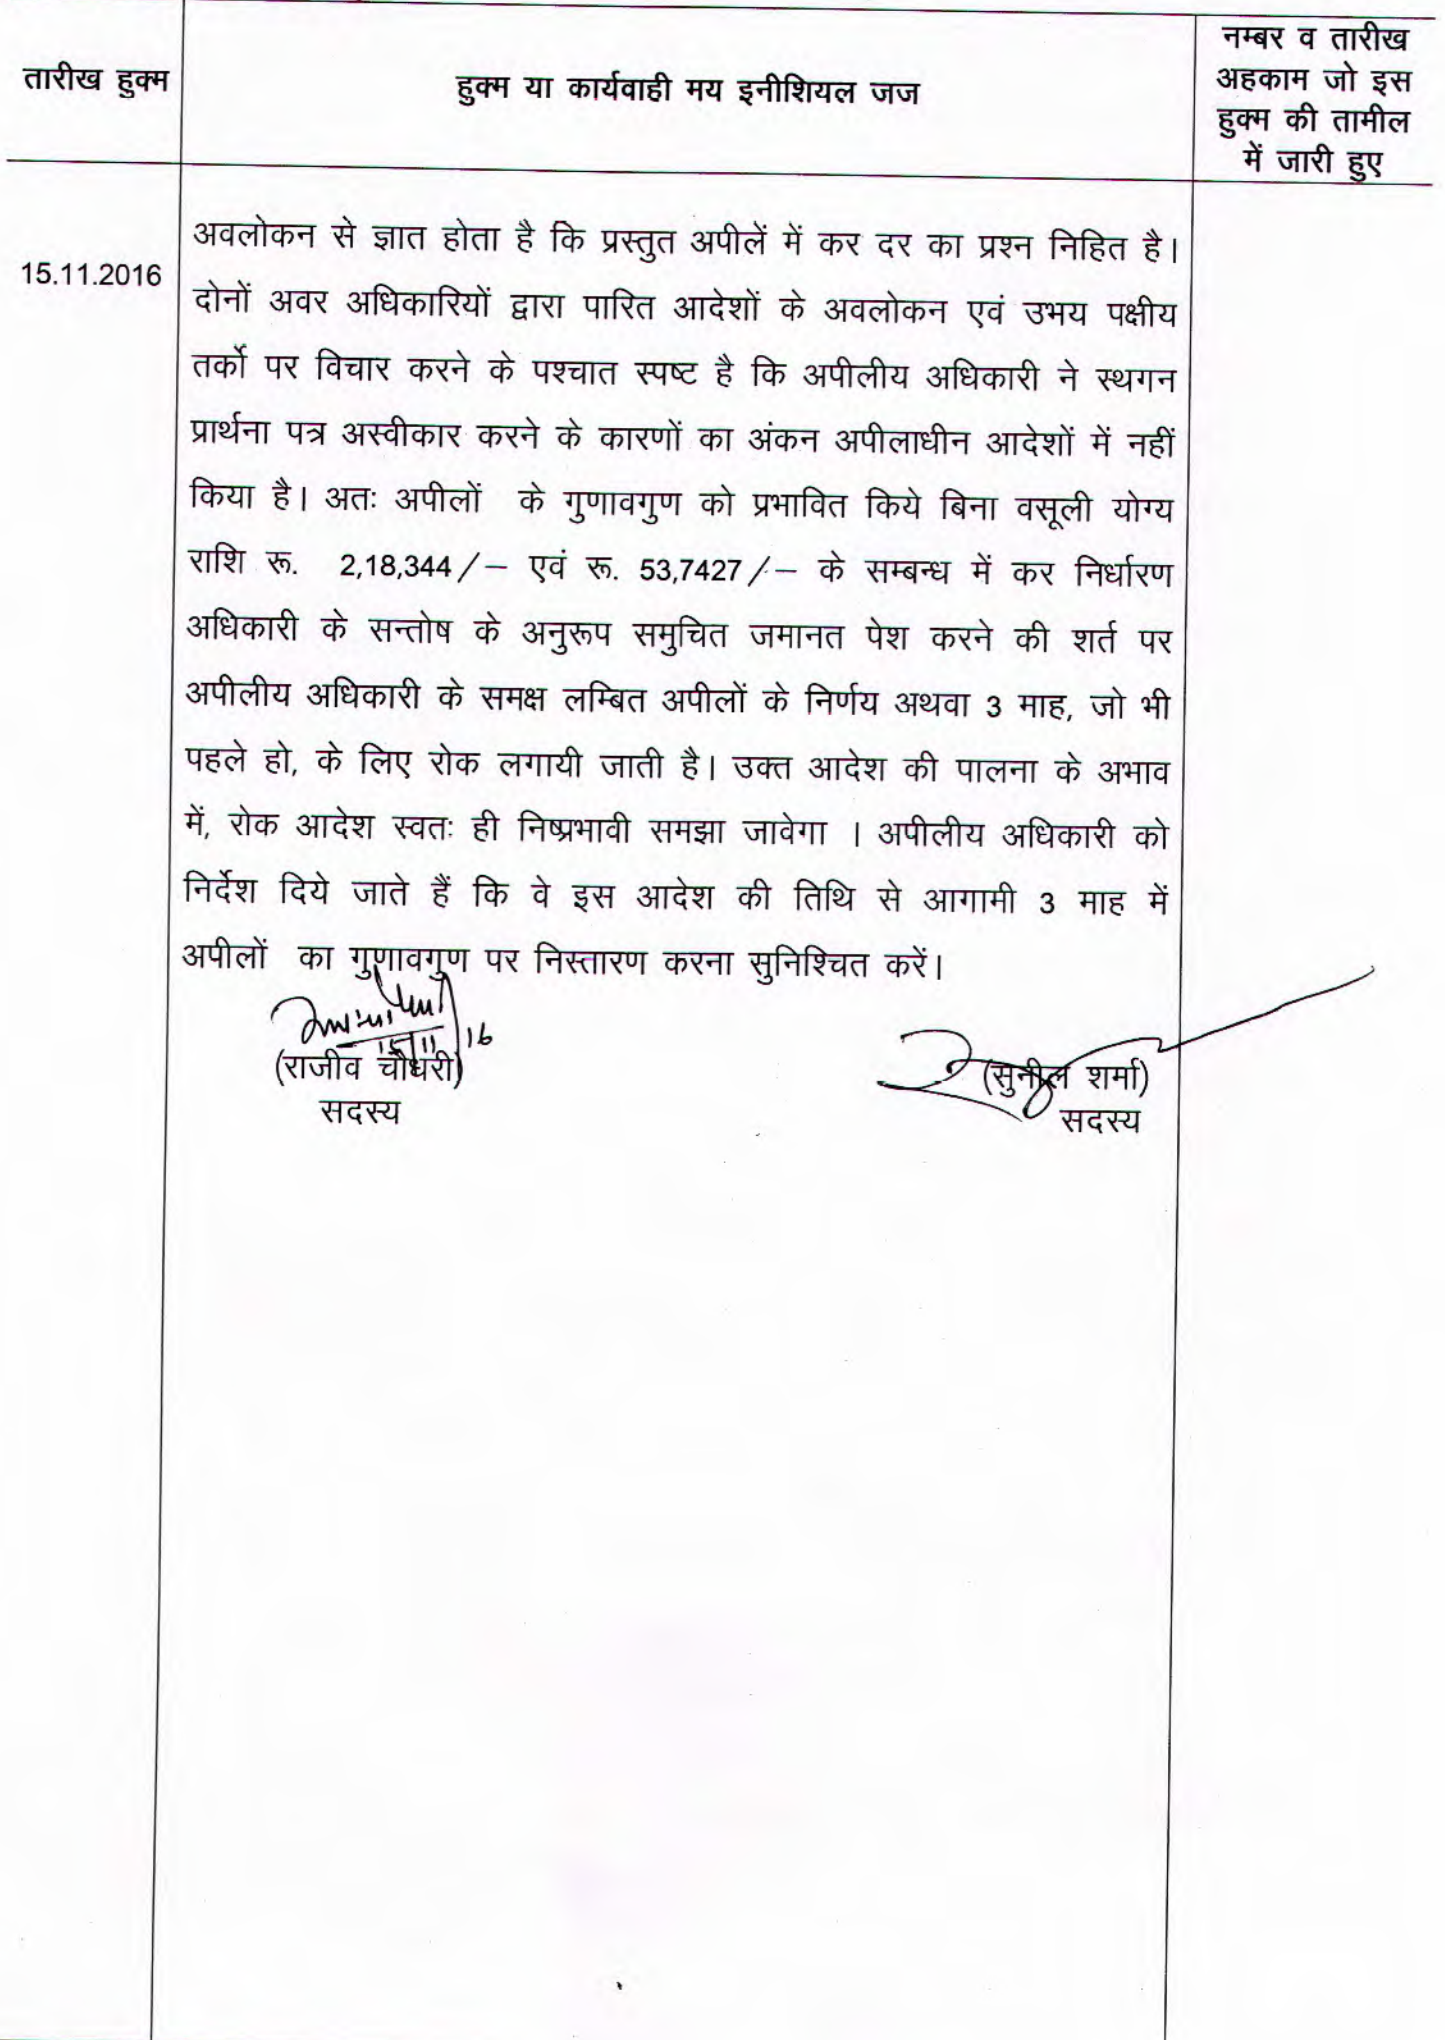 तारीख हुक्म
हुक्म या कार्यवाही मय इनीशियल जज
नम्बर व तारीख
अहकाम जो इस
हुक्म की तामील
में जारी हुए
15.11.2016
अवलोकन से ज्ञात होता है कि प्रस्तुत अपीलें में कर दर का प्रश्न निहित है।
दोनों अवर अधिकारियों द्वारा पारित आदेशों के अवलोकन एवं उभय पक्षीय
तर्को पर विचार करने के पश्चात स्पष्ट है कि अपीलीय अधिकारी ने स्थगन
प्रार्थना पत्र अस्वीकार करने के कारणों का अंकन अपीलाधीन आदेशों में नहीं
किया है। अतः अपीलों के गुणावगुण को प्रभावित किये बिना वसूली योग्य
राशि रू. 2,18,344/– एवं रू. 53,7427/– के सम्बन्ध में कर निर्धारण
अधिकारी के सन्तोष के अनुरूप समुचित जमानत पेश करने की शर्त पर
अपीलीय अधिकारी के समक्ष लम्बित अपीलों के निर्णय अथवा 3 माह, जो भी
पहले हो, के लिए रोक लगायी जाती है। उक्त आदेश की पालना के अभाव
में, रोक आदेश स्वतः ही निष्प्रभावी समझा जावेगा । अपीलीय अधिकारी को
निर्देश दिये जाते हैं कि वे इस आदेश की तिथि से आगामी 3 माह में
अपीलों का गुणावगुण पर निस्तारण करना सुनिश्चित करें।
(राजीव चौधरी)
सदस्य
(सुनील शर्मा)
सदस्य